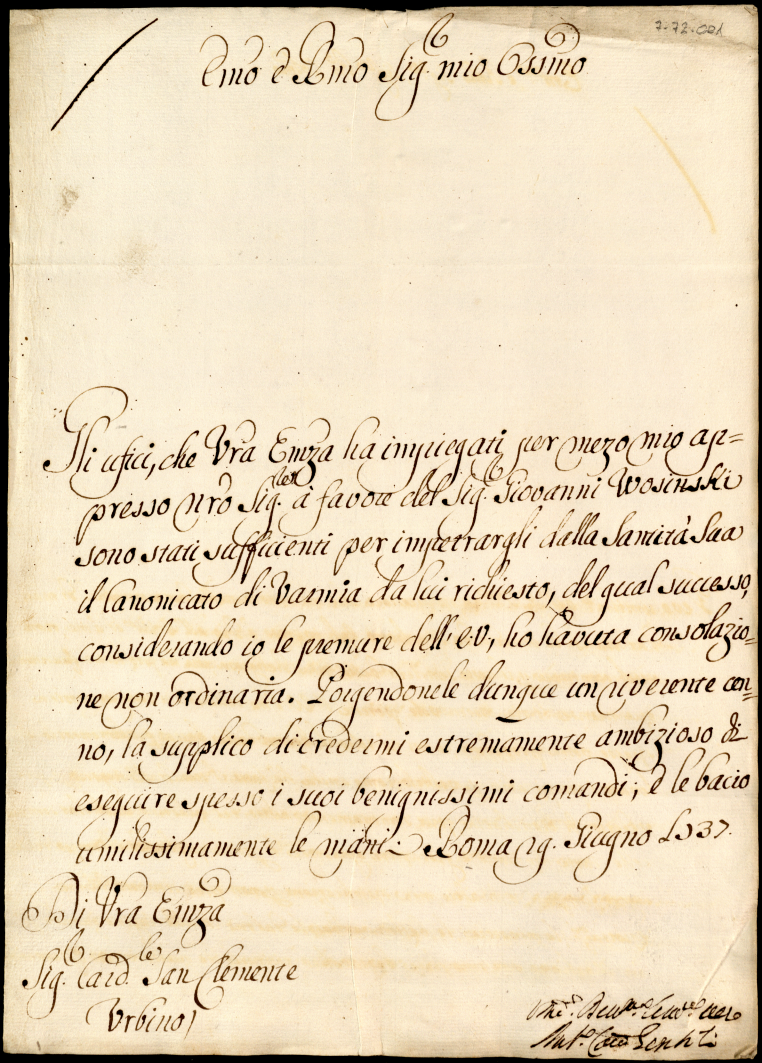 7-72-001
Emo e Rmo Sig.r mio Ossmo
Gli ufici, che Vra Emza ha impiegati per mezo mio ap=
presso nrõ Sig.re à favore del Sig.r Giovanni Wosinski
sono stati sufficienti per impetrargli dalla Santità Sua
il Canonicato di Varmia da lui richiesto, del qual successo,
considerando io le premure dell' E.V., ho havuta consolazio=
ne non ordinaria. Porgendonele dunque un riverente cen=
no, la supplico di credermi estremamente ambizioso di
eseguire spesso i suoi benignissimi comandi; è le bacio
umilissimamente le mani. Roma 19. Giugno 1737.
Di Vra Emza
Sig.r Card.le San Clemente
Urbino
Ant.o Card Gentili